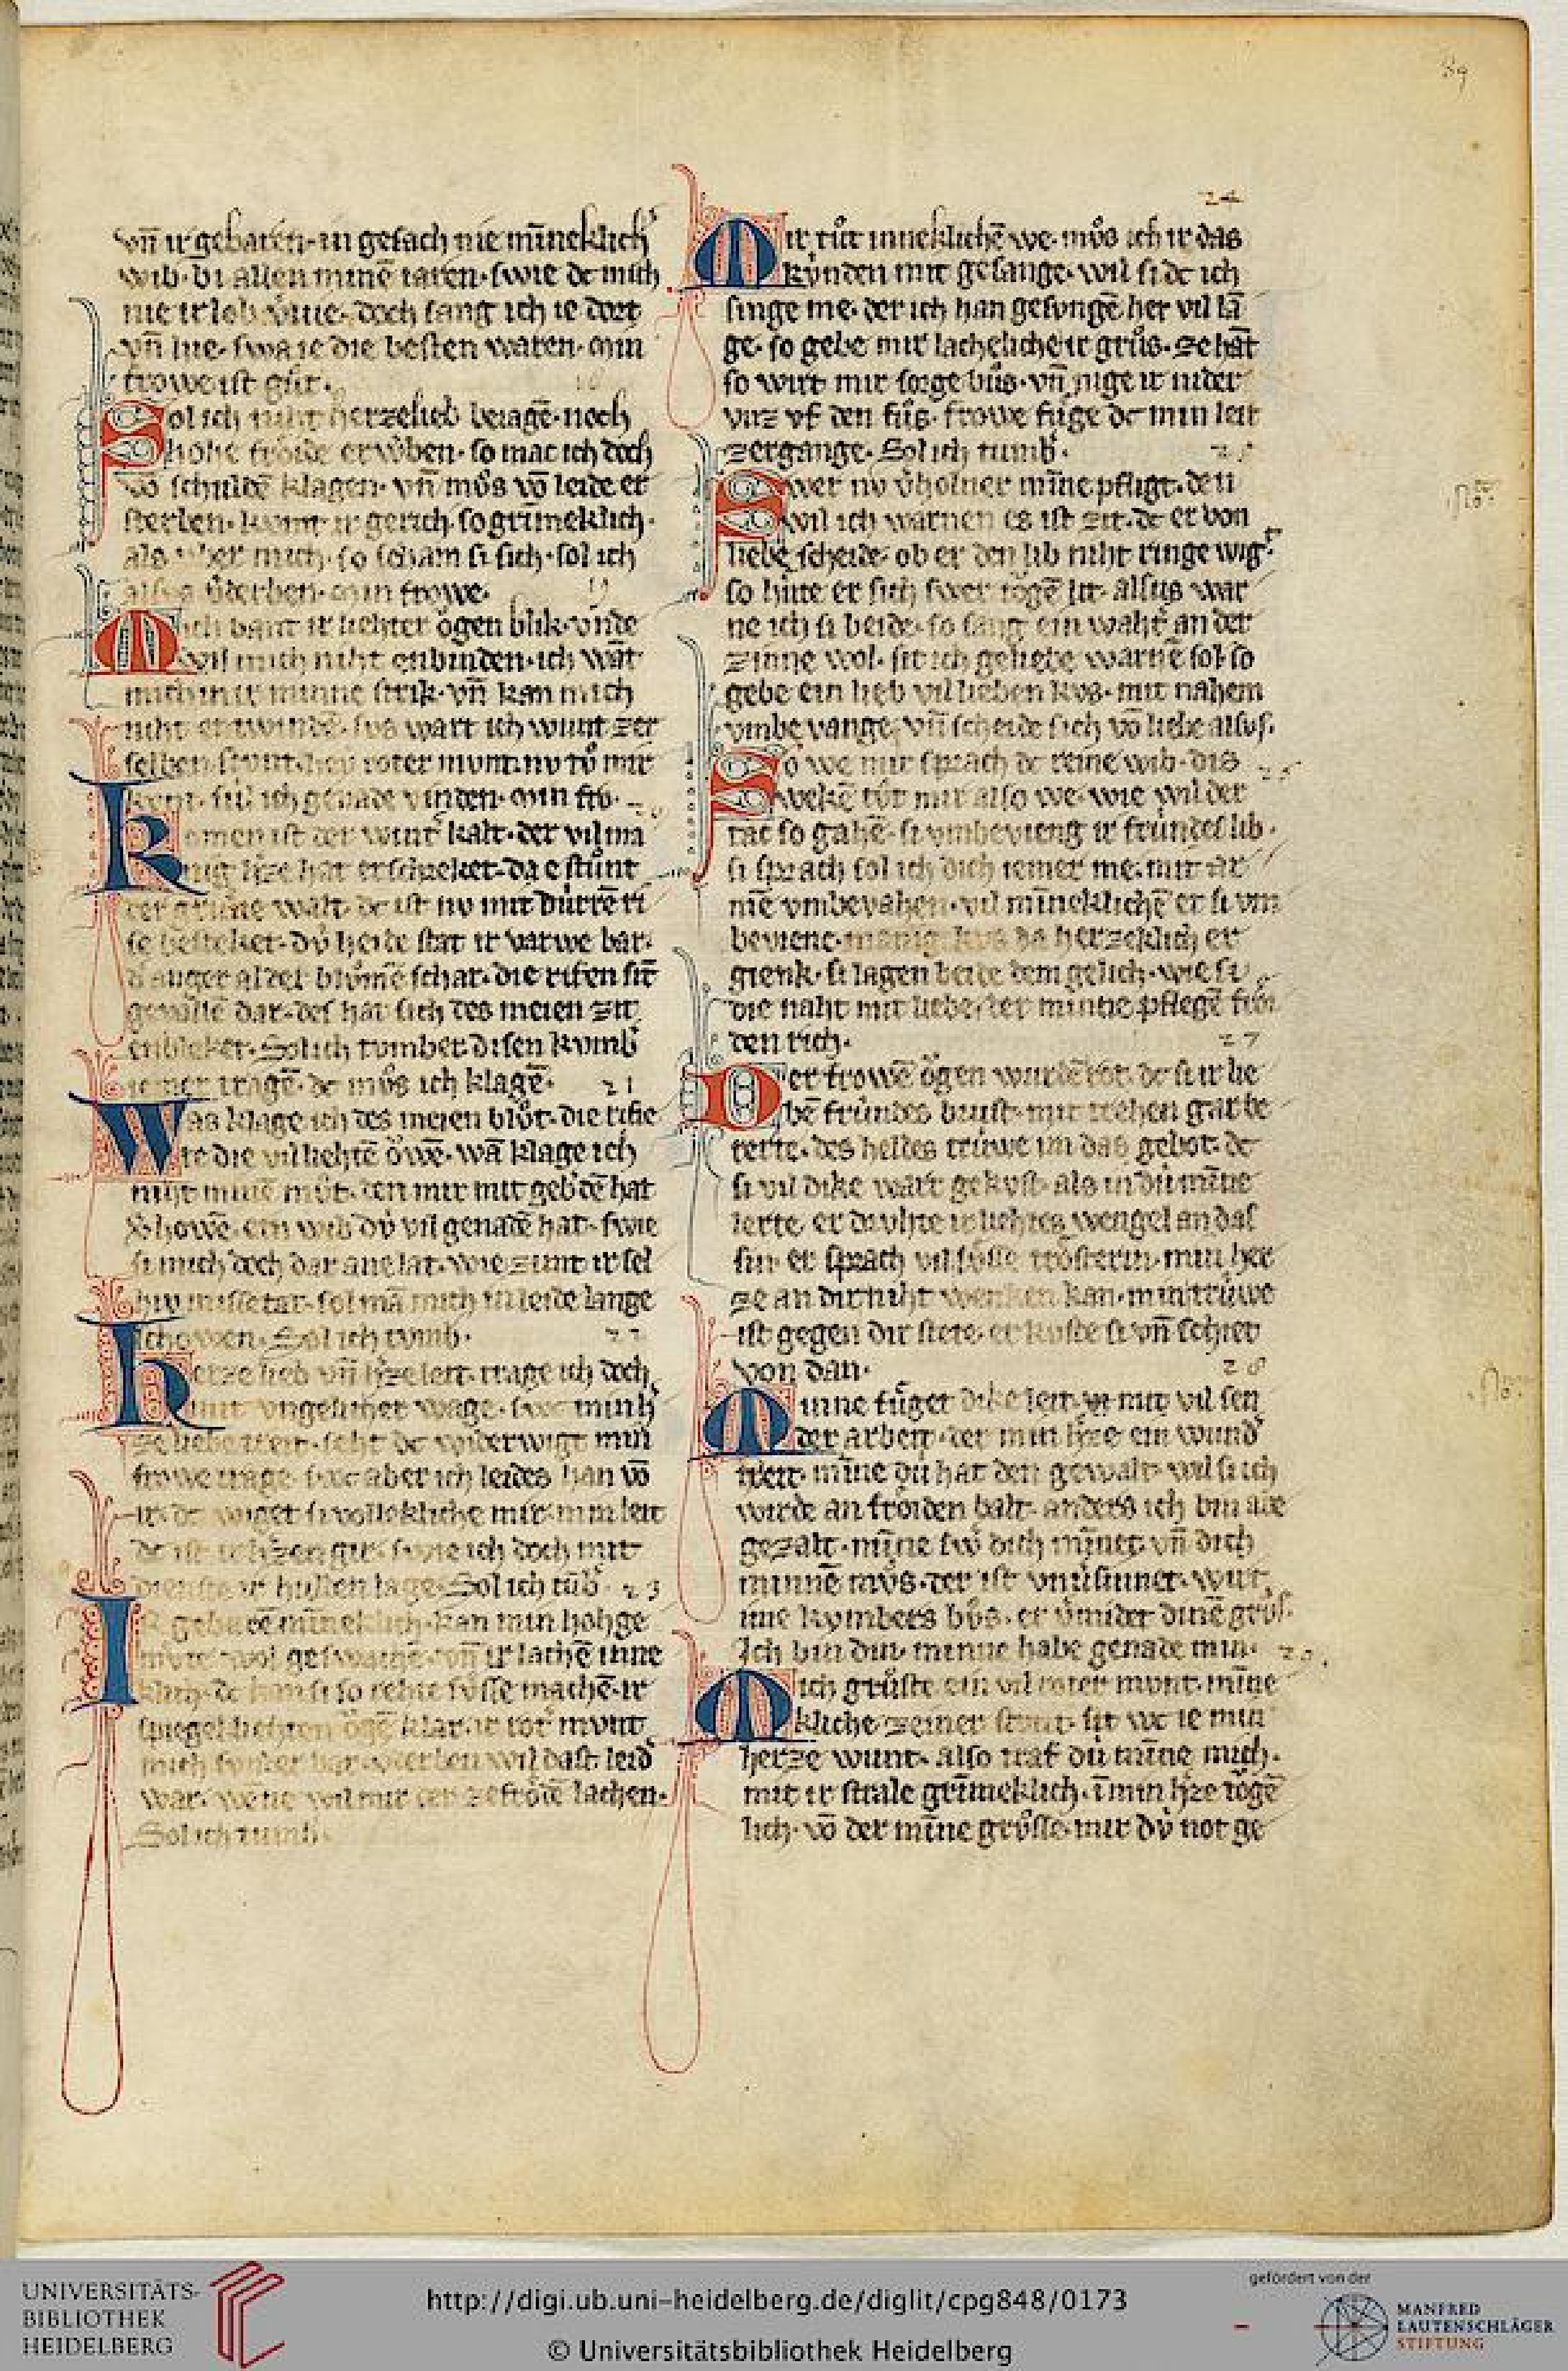 89
vn̄ ir gebaren· in gesach nie mīneklich
wib· bi allen minē iaren· swie dc mich
nie ir lob doch sang ich ie dort
vn̄ hie· swa ie die besten waren· min
frowe ist gůt·
Sol ich niht herzelieb beiagē· noch
hohe froͤide erwͤben· so mac ich doch
vō schuldē klagen· vn̄ mͦvs vō leide er
sterben· kvmt ir gerich so grimeklich·
als vber mich· so scham si sich· sol ich
verderben· min frowe·
Mich bant ir liehter oͮgen blik· vnde
wil mich niht enbinden· ich wāt
mich in ir minne strik· vn̄ kan mich
niht entwindē· svs wart ich wunt zer
selben stunt· hey roter mvnt· nv tͦv mir
kvnt· sul ich genade vinden· min fro·
20
Komen ist der wintˀ kalt· der vil ma
nig hˀze hat erschreket· da e stͦunt
der grͤune walt· dc ist nv mit durrē ri
se besteket· dv́ heide stat ir varwe bar·
anger al der blͦvmē schar· die rifen sīt
gevallē dar· des hat sich des meien zit
enbleket· Sol ich tvmber disen kvmbˀ
iemer tragē· dc mͦvs ich klagē· 21
Was klage ich des meien blͦvt· die rifie
re die vil liehtē oͮwē· wā klage ich
niht minē mͦvt· den mir mit gebˀdē hat
vˀhowē· ein wib dv́ vil genadē hat· swie
si mich doch dar ane lat· wie zimt ir sel
hiv missetat· sol mā mich in leide lange
schowen· Sol ich tvmb· 22
Herze lieb vn̄ hˀze leit· trage ich doch
mit vngelicher wage· swc min hˀ
ze liebe treit· seht dc widerwigt min
frowe trage· swc aber ich leides han vō
ir· dc wiget si volleklliche mir· min leit
dc ist ir hˀzen gir· swie ich doch mit
dienste ir hulden lage· Sol ich tūb· 23
Ir geburē mīneklich· kan min hohge
mvte wol geswachē· vn̄ ir lachē inne
klich· dc kan si so rehte sͤvsse machē· ir
spiegel liehten oͮgē klar· ir rotˀ mvnt
mich sunder bar· verderben wil dast leidˀ
war· wēne wil mir der ze froͤidē lachen·
Sol ich tumb·
24
Mir tͦut inneklichē we· mͦvs ich ir das
kv́nden mit gesange· wil si dc ich
singe me· der ich han gesvngē her vil lā
ge· so gebe mir lachelichē ir grͦus· zehāt
so wirt mir sorge bͦus· vn̄ nige ir nider
vnz vf den fͦus· frowe fͤuge dc min leit
zergange· Sol ich tumb· 25
Swer nv vˀholner mīne pfligt· den
wil ich warnen es ist zit· dc er von
liebe scheide· ob er den lib niht ringe wigt·
so hͤute er sich swer toͮgē lit· allus war
ne ich si beide· so sang ein wahtˀ an der
zinne wol· sit ich geliebe warnē sol· so
gebe ein lieb vil lieben kvs· mit nahem
vmbe vange· vn̄ scheide sich vō liebe alsvs·
So we mir sprach dc reine wib· dis
wekē tͦvt mir also we· wie wil der
tac so gahē· si vmbevieng ir frúndes lib·
si sprach sol ich dich iemer me· mit ar
mē vmbevahen· vil mīneklichē er si vm
beviene· manig kvs da herzeklich er
gienk· si lagen beide dem gelich· wie si
die naht mit liebe der minne pflegē froͤi
den rich· 27
Der frowē oͮgen wurdē rot· dc si ir lie
bē frúndes brust· mit trehen gar be
rerte· des heldes trúwe im das gebot· dc
si vil dike wart gekvst· als in dú mīne
lerte· er druhte ir liehtes wengel an das
sin· er sprach vil sͤusse troͤsterin· min her
ze an dir niht wenken kan· min trúwe
ist gegen dir stete· er kuste si vn̄ schiet
von dan· 28
Minne fͤuget dike leit· mit vil sen
der arbeit· der min hˀze ein wundˀ
treit· mīne dú hat den gewalt· wil si ich
wirde an froͤiden balt· anders ich bin abe
gezalt· mīne swˀ dich mīnet· vn̄ dich
minnē mͦvs· der ist vnvˀsinnet· wirt
ime kvmbers bͦvs· er vˀmider dinē grͦvs·
Ich bin din· minne habe genade min·
Mich grͦuste ein vil roter mvnt· mīne
kliche zeiner stvnt· sit wc ie min
herze wunt· also traf dú mīne mich·
mit ir strale grīmeklich· ī min hˀze toͮgē
lich· vō der mīne grͦvsse· mir dv́ not ge
UNIVERSITÄTS-
BIBLIOTHEK
HEIDELBERG
http://digi.ub.uni-heidelberg.de/diglit/cpg848/0173
© Universitätsbibliothek Heidelberg
gefördert von der
MANFRED
LAUTENSCHLÄGER
STIFTUNG